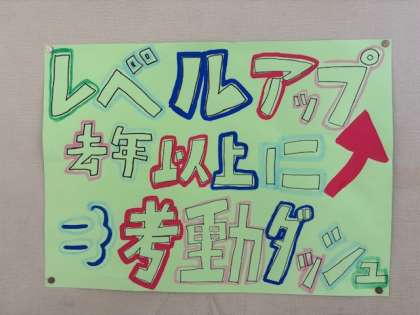 レベルアップ
去年以上に
考動ダッシュ